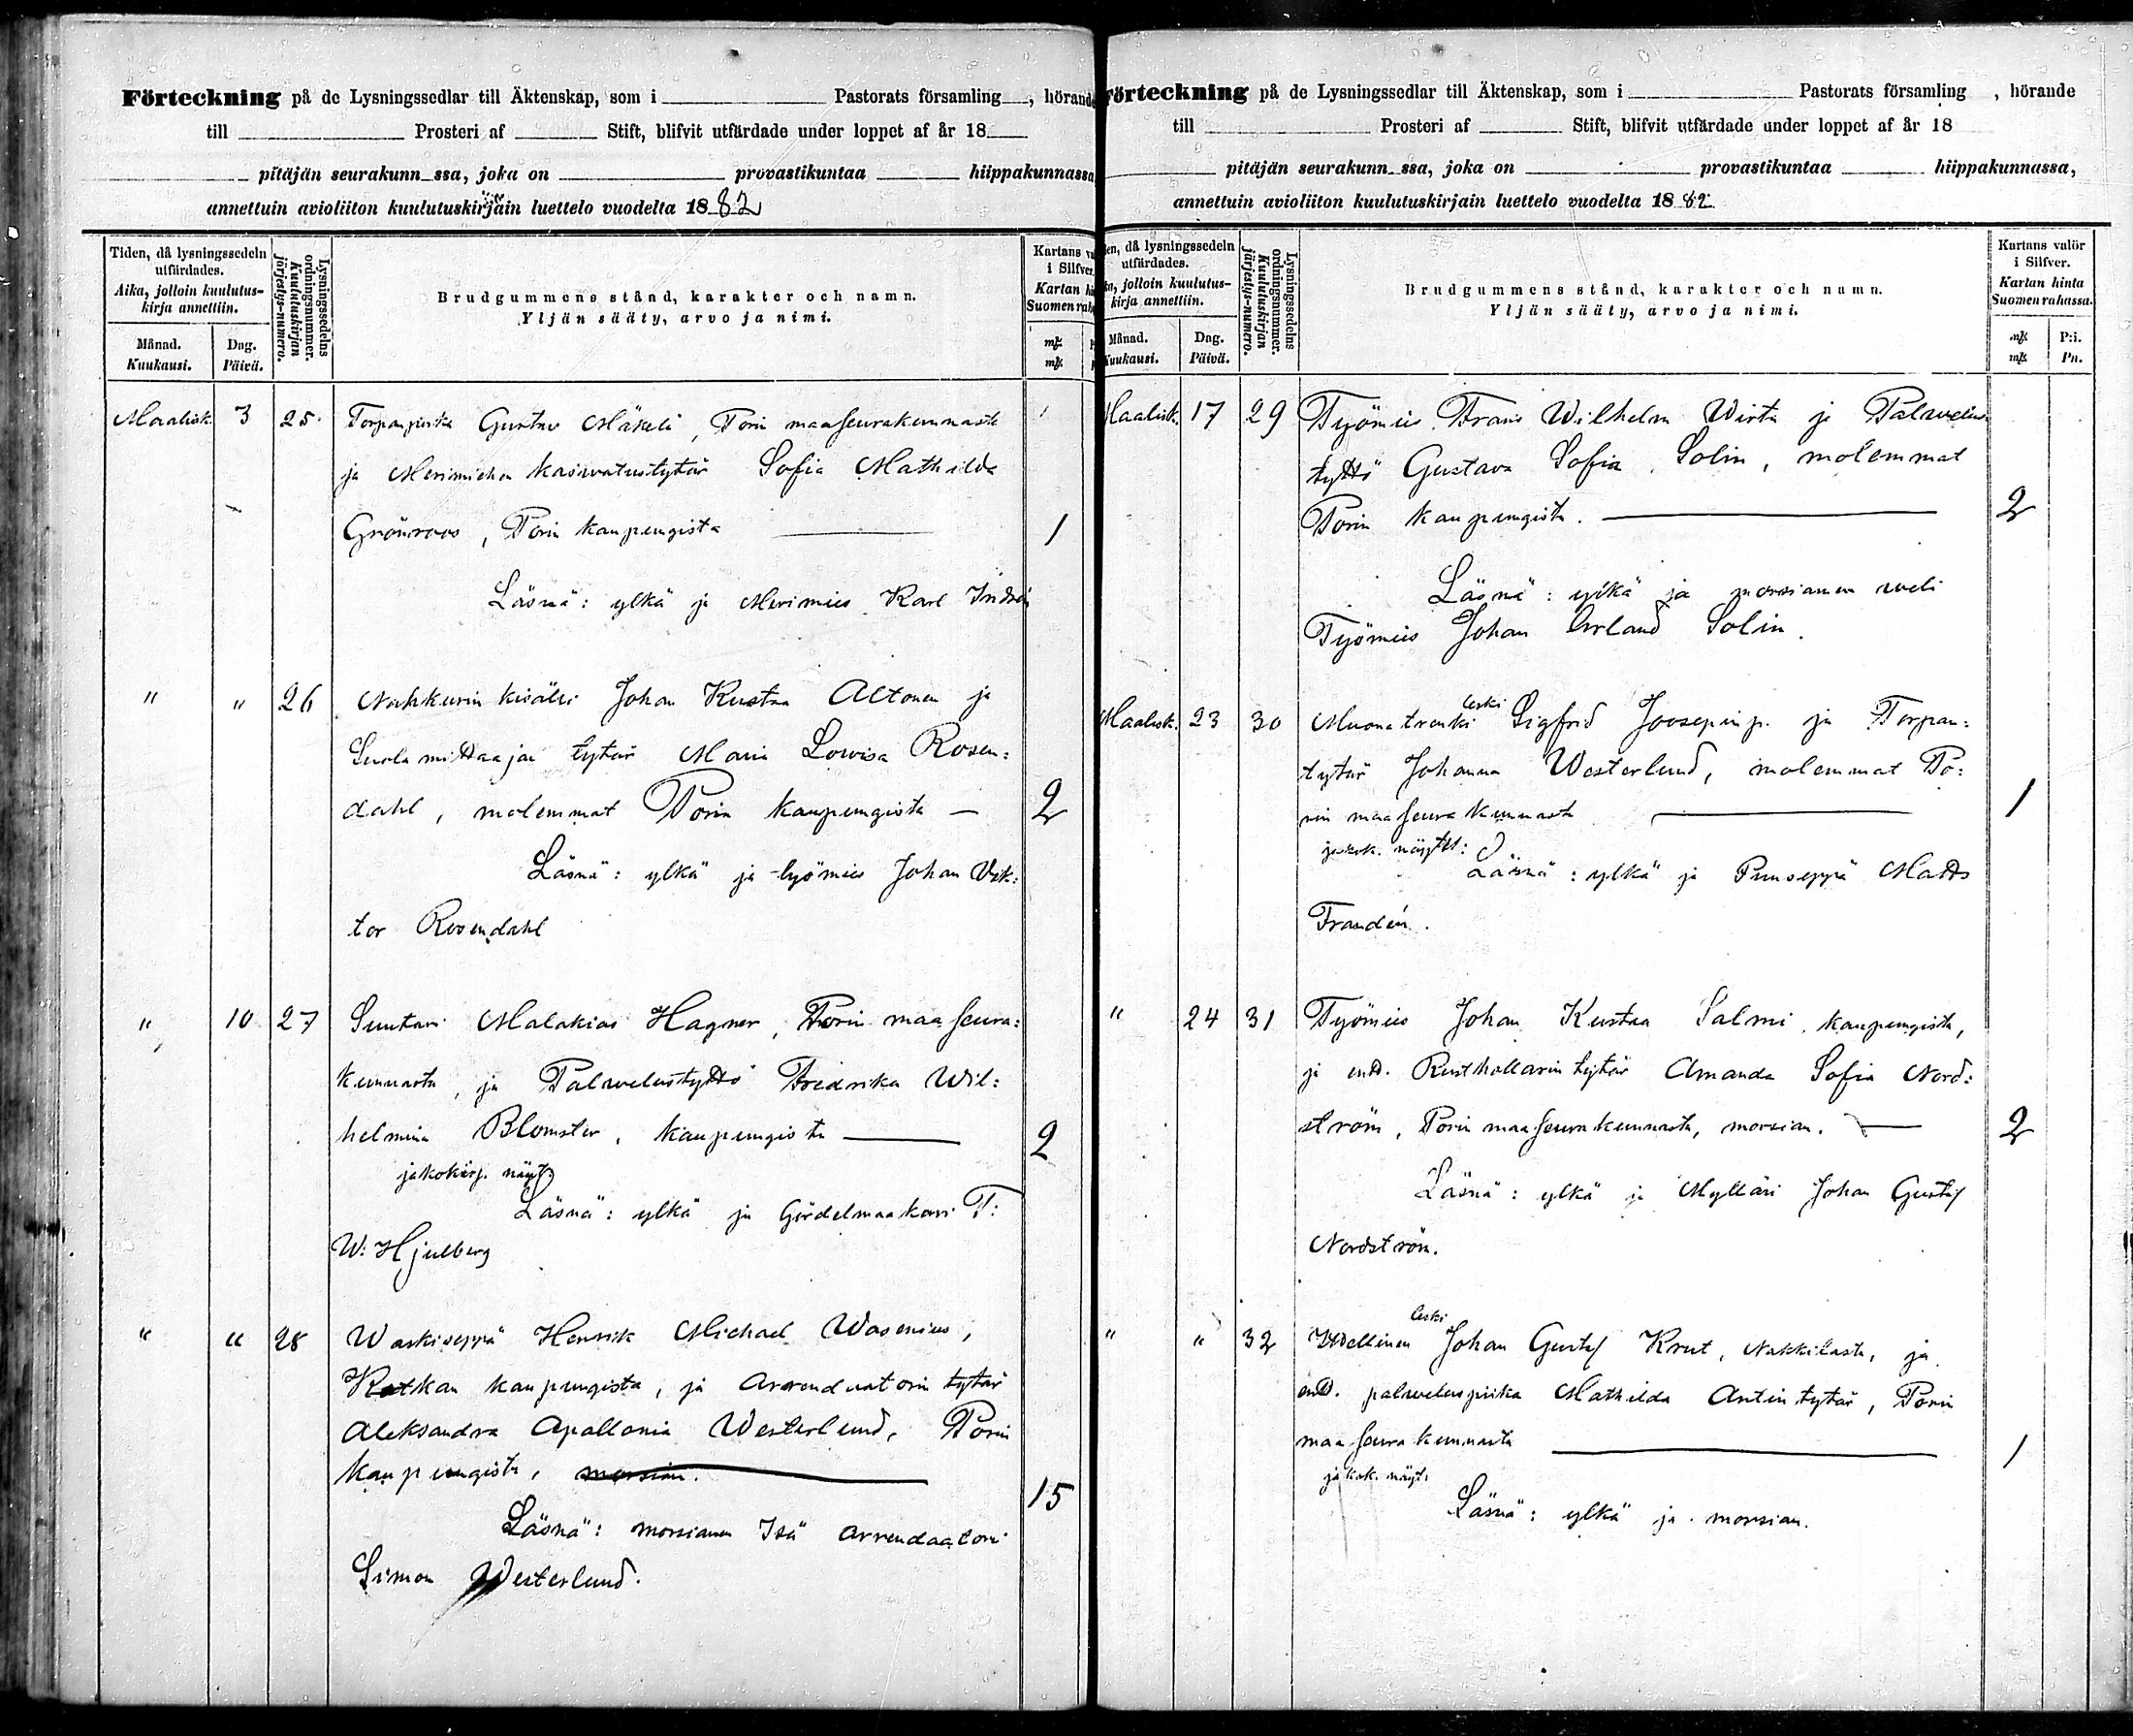 Förteckning på de Lysningssedlar till Äktenskap, som i Pastorats församling , hörande
till Prosteri af Stift, blifvit utfärdade under loppet af år 18
pitäjän seurakunn ssa, joka on provastikuntaa hiippakunnassa
annettuin avioliiton kuulutuskirjain luettelo vuodelta 1882
Tiden, då lysningssedeln
utfärdades.
Aika, jolloin kuulutus-
kirja annettiin.
Månad.
Kuukausi.
Dag.
Päivä.
Lysningssedelns
ordningsnummer.
Kuulutuskirjan
järjestys-numero.
Brudgummens stånd, karakter och namn.
Yljän sääty, arvo ja nimi.
Kartans
i Silfver.
Kartan
Suomen
mk
mk
Maalisk. 3 25. Gustav Mäkelä, Porin maaseurakunnasta
ja Merimiehen kasvatustytär Sofia Mathilda
Grönroos, Porin kaupungista 1
Läsnä: ylkä ja Merimies Karl
" " 26 Nahkurin kisälli Johan Kustaa Altonen ja
Suolamittaajan tytär Maria Lovisa Rosen:
dahl, molemmat Porin kaupungista — 2
Läsnä: ylkä ja työmies Johan Vik:
tor Rosendahl
" 10 27 Suutari Malakias Hagner, Porin maaseura:
kunnasta, ja Palwelustyttö Fredrika Wil:
helmina Blomster, kaupungista 2
jakokirj. näyt.
Läsnä: ylkä ja Gördelmaakari F:
W: Hjulberg
" " 28 Waskiseppä Henrik Michael Wasenius,
Kotkan kaupungista, ja Arrendaatorin tytär
Aleksandra Apollonia Westerlund, Porin
kaupungista, morsian. 15
Läsnä: morsiamen Isä arrendaatori
Simon Westerlund.
Förteckning på de Lysningssedlar till Äktenskap, som i Pastorats församling , hörande
till Prosteri af Stift, blifvit utfärdade under loppet af år 18
pitäjän seurakunn ssa, joka on provastikuntaa hiippakunnassa,
annettuin avioliiton kuulutuskirjain luettelo vuodelta 1882
då lysningssedeln
utfärdades.
jolloin kuulutus-
kirja annettiin.
Månad.
Kuukausi.
Dag.
Päivä.
Lysningssedelns
ordningsnummer.
Kuulutuskirjan
järjestys-numero.
Brudgummens stånd, karakter och namn.
Yljän sääty, arvo ja nimi.
Kartans valör
i Silfver.
Kartan hinta
Suomen rahassa.
mk P:i.
mk Pn.
Maalisk. 17 29 Työmies Frans Wilhelm Wirta ja Palwelus
tyttö Gustava Sofia Solin, molemmat
Porin kaupungista. 2
Läsnä: ylkä ja morsiamen weli
Työmies Johan Erland Solin.
leski
Maalisk. 23 30 Muonatrenki Sigfrid Joosepinp. ja Torpan:
tytär Johanna Westerlund, molemmat Po:
rin maaseurakunnasta 1
jakok. näytet:
Läsnä: ylkä ja Puuseppä Matts
Frandén.
" 24 31 Työmies Johan Kustaa Salmi, kaupungista,
ja ent. Rusthollarin tytär Amanda Sofia Nord:
ström, Porin maaseurakunnasta, morsian. 2
Läsnä: ylkä ja Mylläri Johan Gustaf
Nordström.
leski
" " 32 Itsellinen Johan Gustaf Krut, Nakkilasta, ja
ent. palweluspiika Mathilda Antintytär, Porin
maaseurakunnasta 1
jakok. näyt.
Läsnä: ylkä ja morsian.